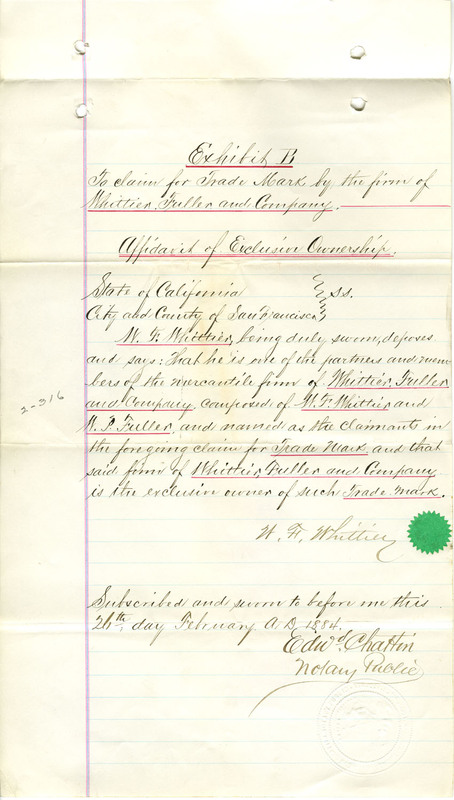 Exhibit B
To claim for Trade Mark by the firm of
Whittier, Fuller and Company.
Affidavit of Exclusive Ownership.
State of California } ss.
City and County of San Francisco }
W. F. Whittier, being duly sworn, deposes
and says: That he is one of the partners and mem-
bers of the mercantile firm of Whittier, Fuller
and Company, composed of W. F. Whittier and
W. P. Fuller, and named as the claimants in
the foregoing claim for Trade Mark, and that
said firm of Whittier, Fuller and Company
is the exclusive owner of such Trade Mark.
2-316
W. F. Whittier
Subscribed and sworn to before me this
26th day February A.D. 1884.
Edwd. Chattin
Notary Public